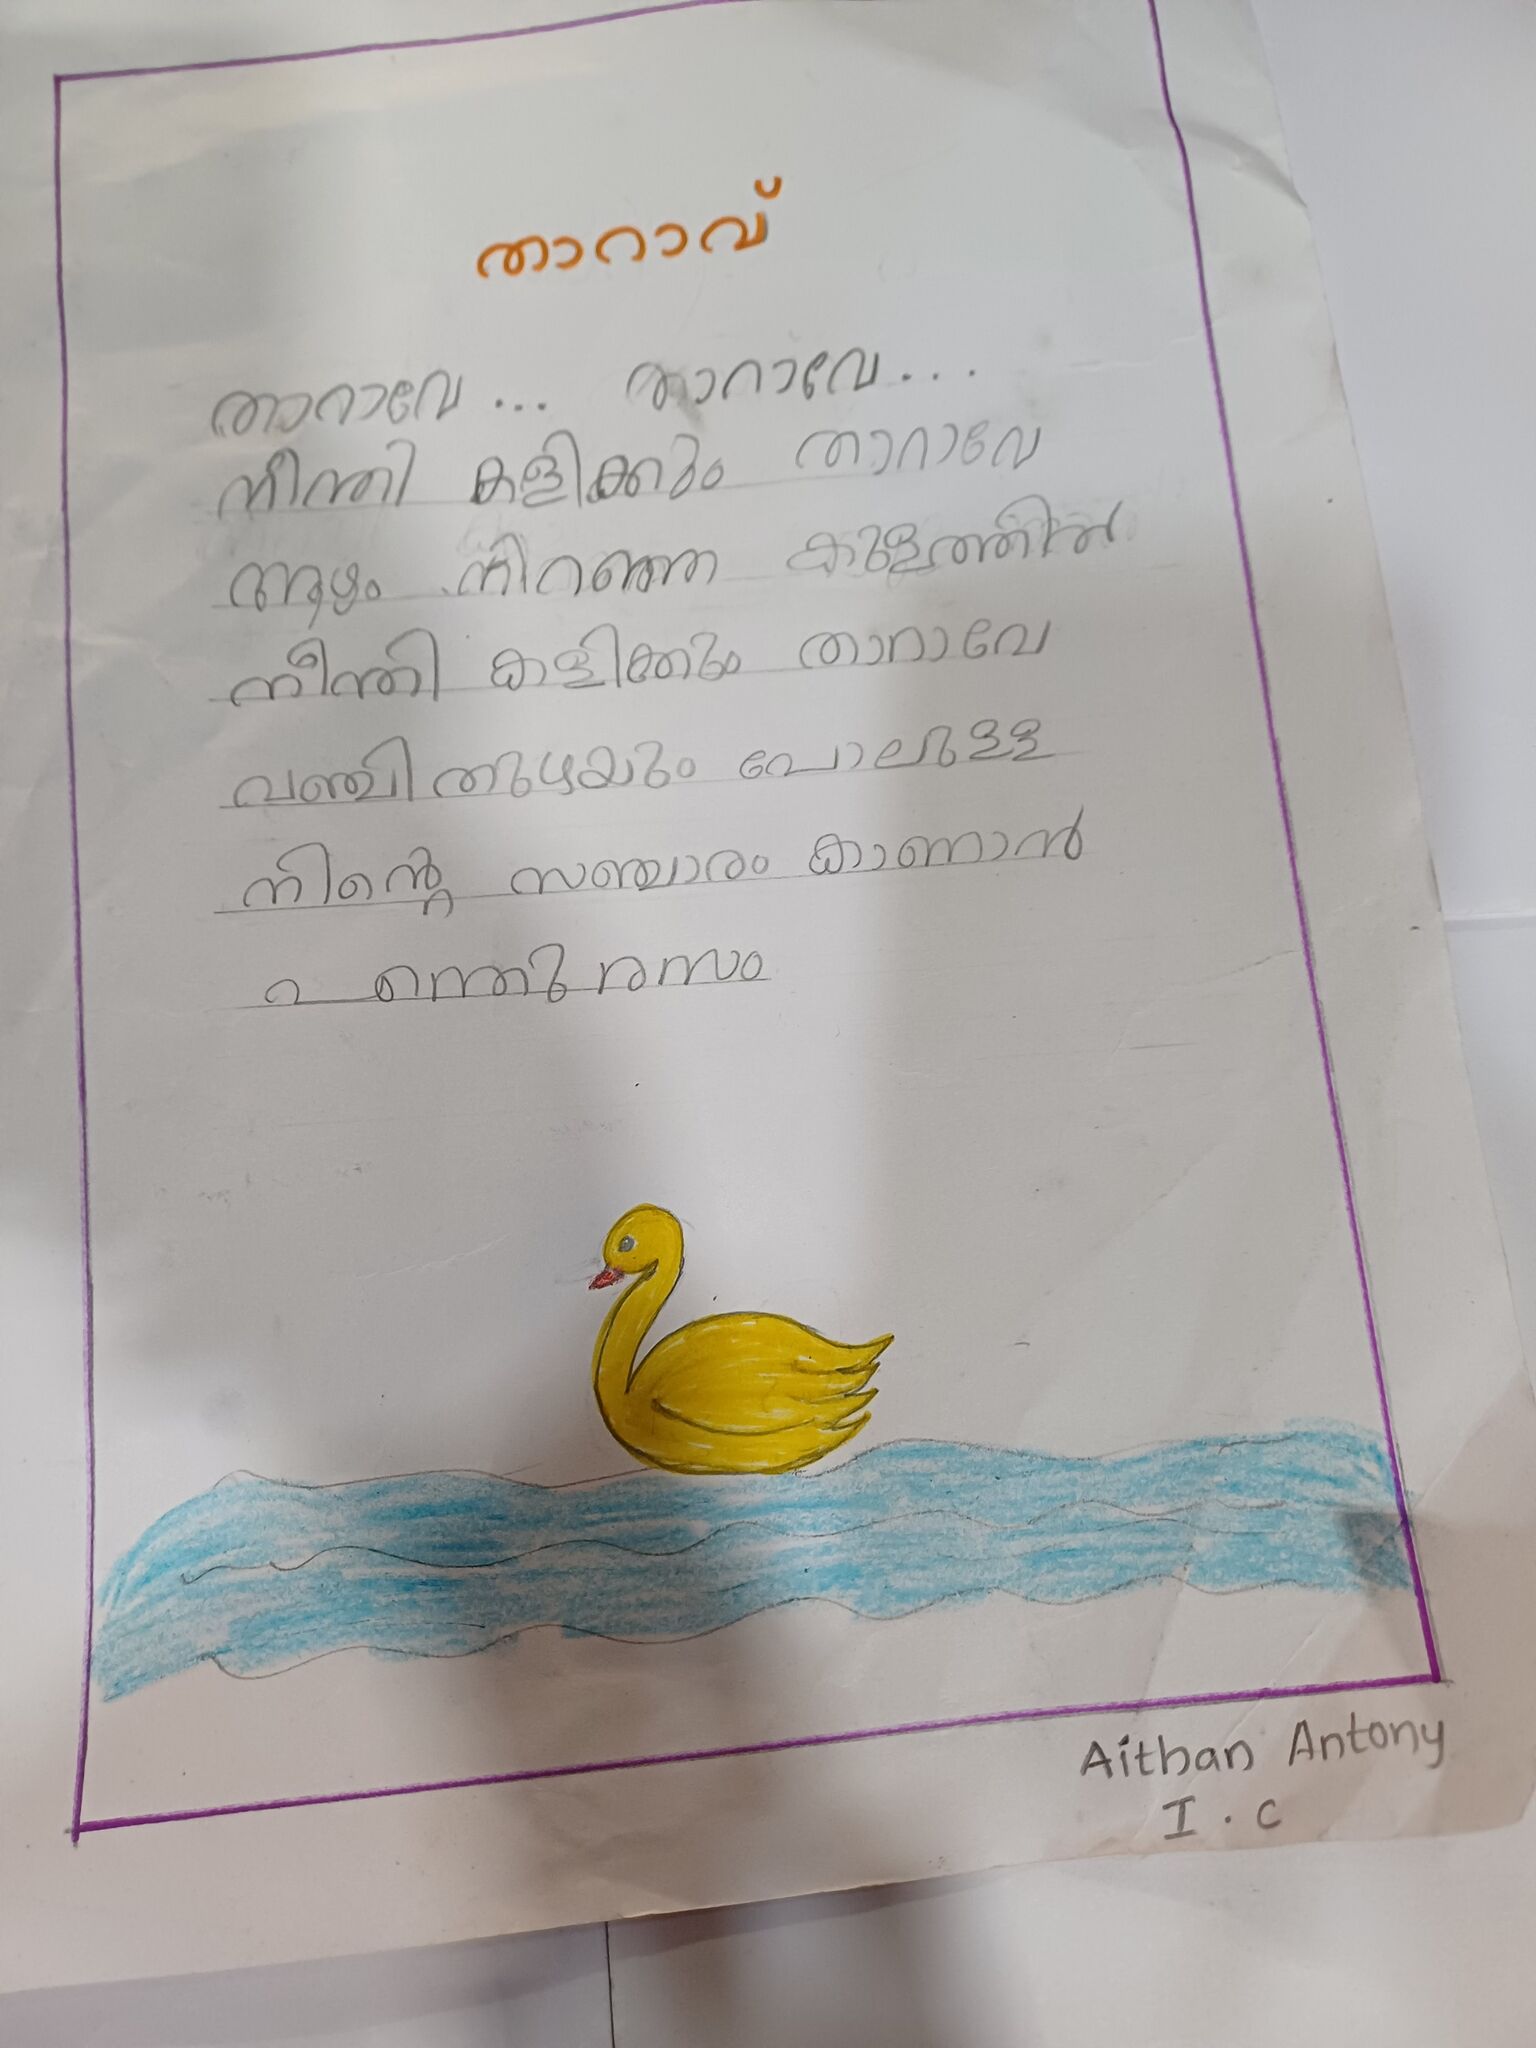 താറാവ്
താറാവേ... താറാവേ...
നീന്തി കളിക്കും താറാവേ
ആഴം നിറഞ്ഞ കുളത്തിൽ
നീന്തി കളിക്കും താറാവേ
വഞ്ചി തുഴയും പോലുള്ള
നിന്റെ സഞ്ചാരം കാണാൻ
എന്തു രസം
Aithan Antony
I. C